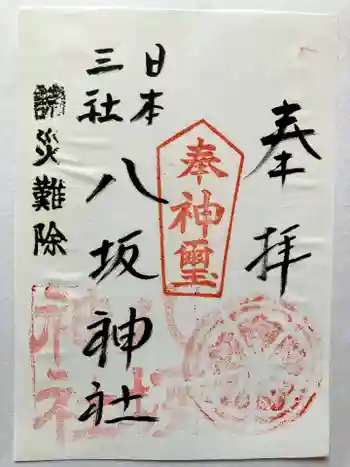 奉拝
奉神璽
日本
三社
八坂神社
諸災難除